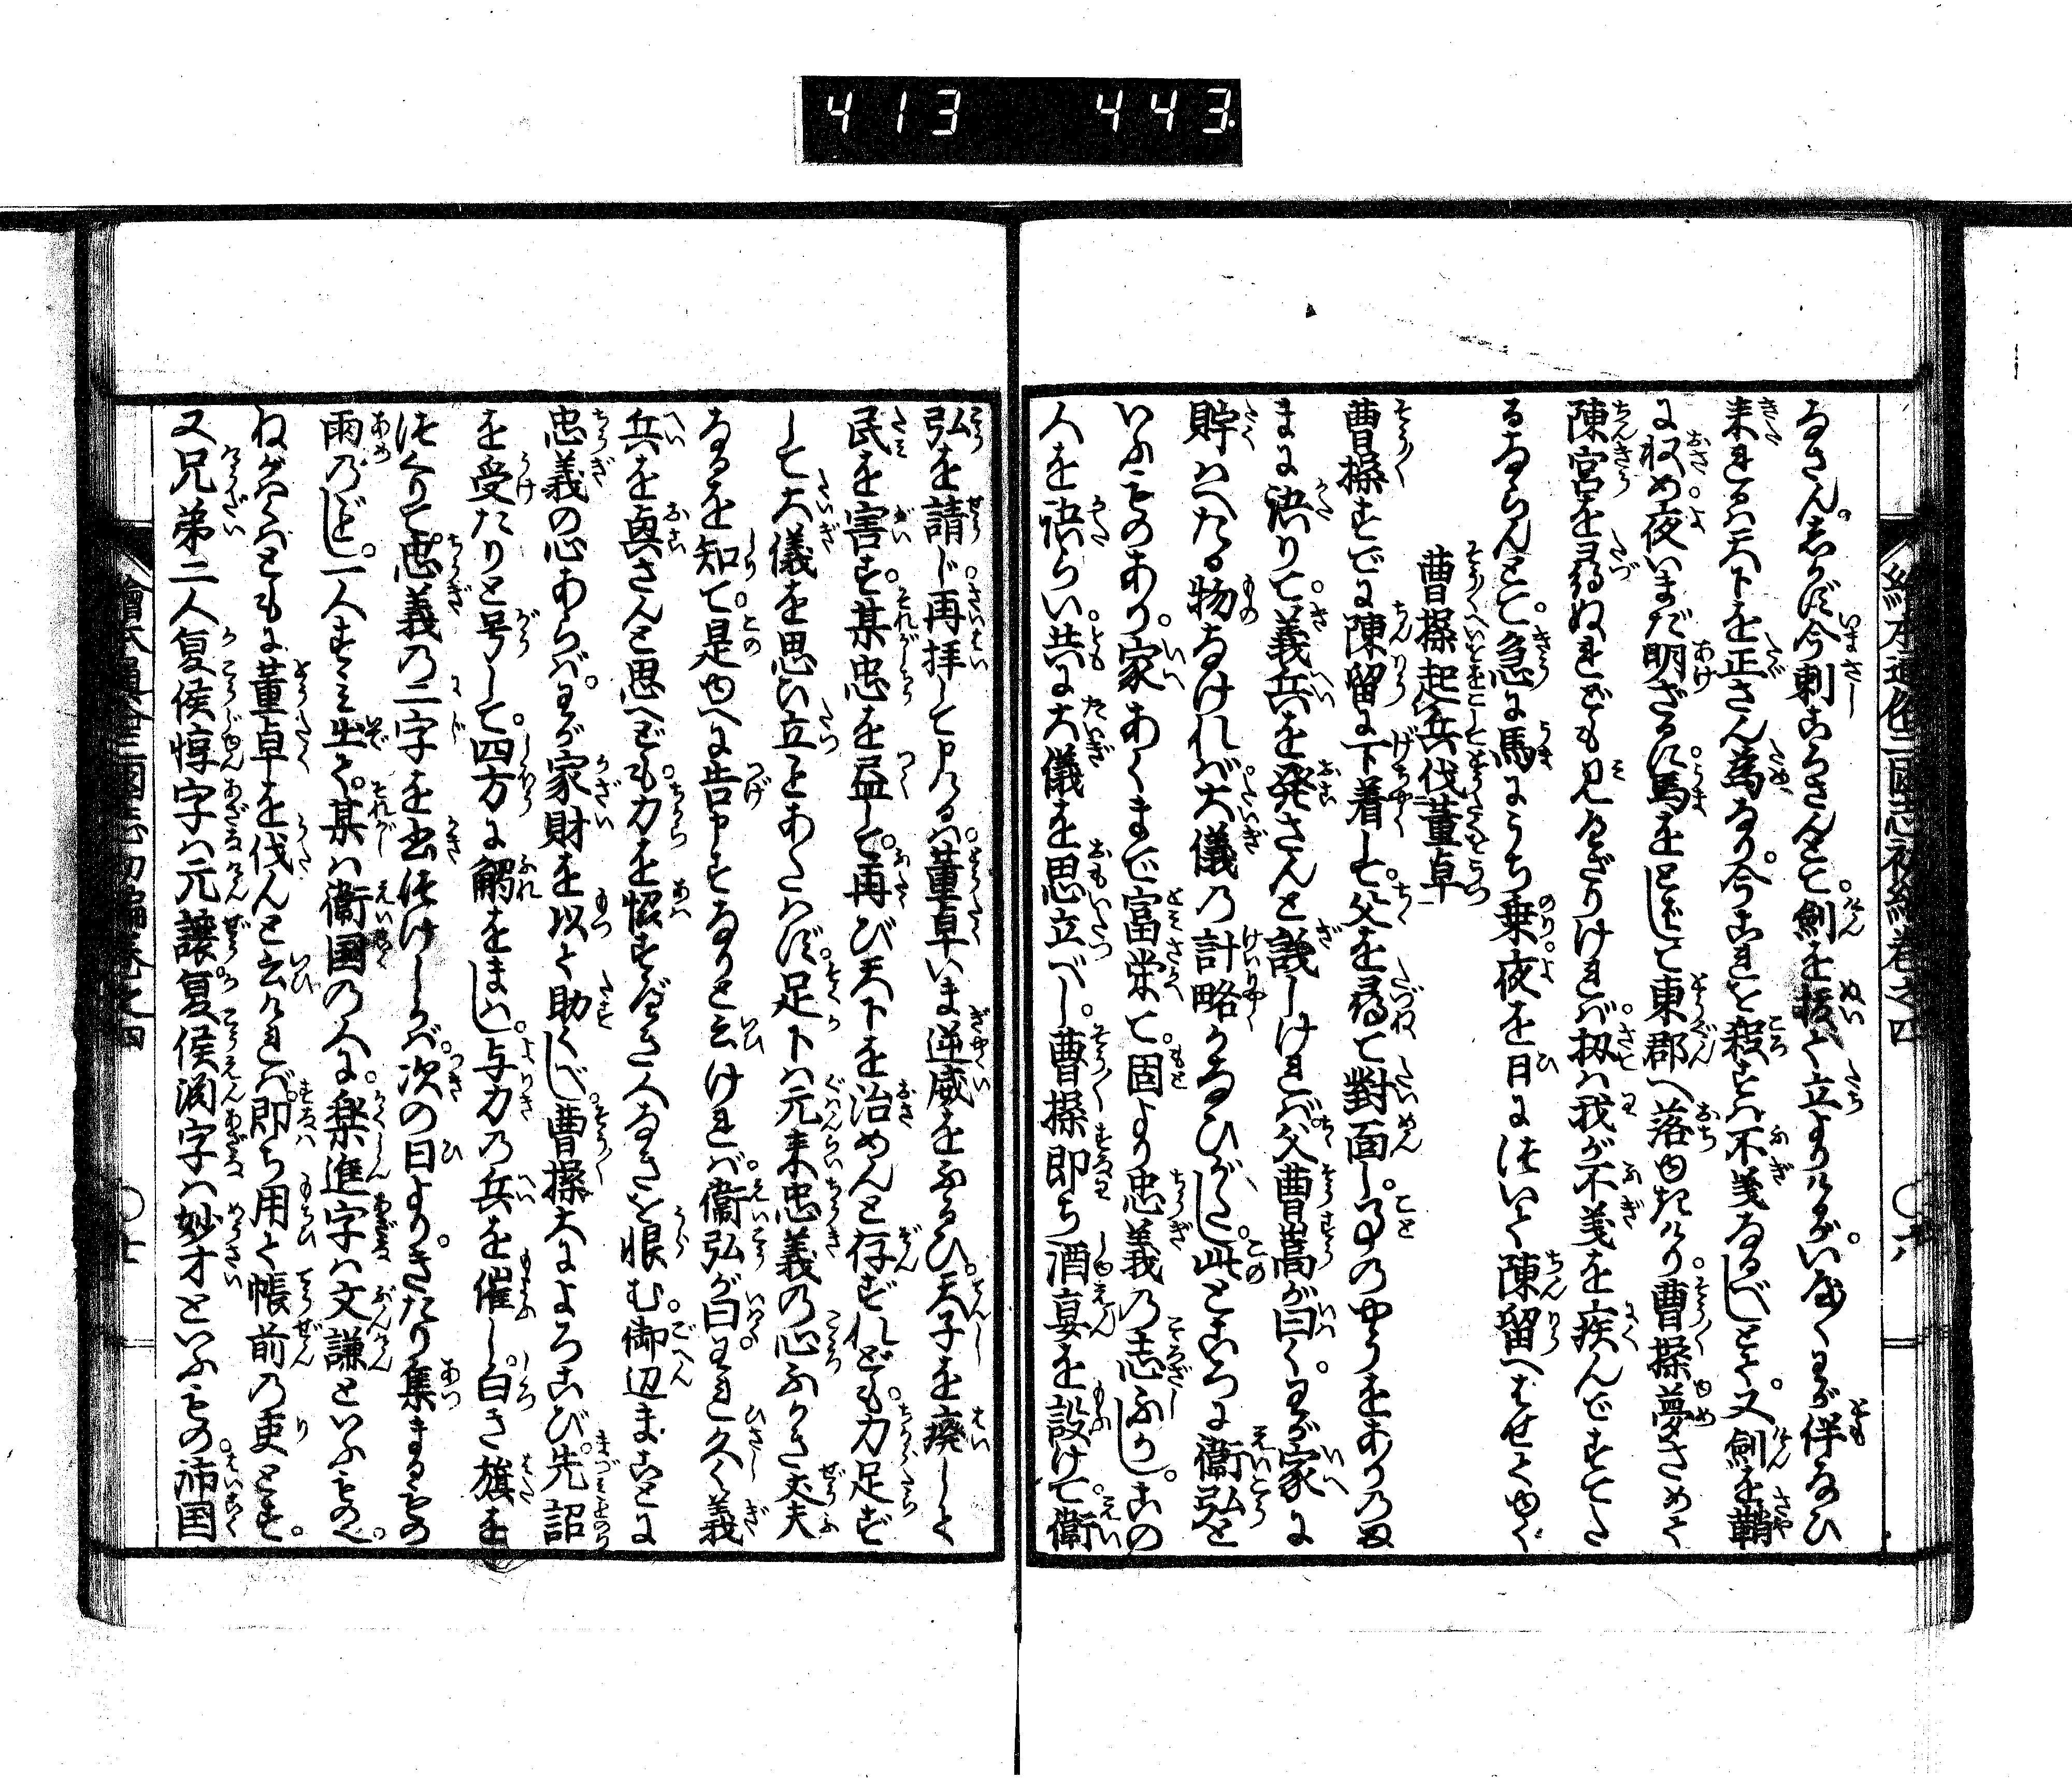 413 443.
なさん。しかじ今刺ころさんとて。劍を抜て立よりけるが。いやくわが伴なひ
来れるハ天下を正さん為なり。今これを殺さバ不義なるべしとて。又劍を鞘
に収め。夜いまだ明ざるに。馬をとばして東郡へ落ゆきけり。曹操夢さめて
陳宮を尋ぬれども見えざりければ。扨ハ我が不義を疾んですてた
るならんとて。急に馬にうち乗。夜を日に継いで陳留へはせてゆく
曹操起兵伐董卓
曹操すでに陳留に下着して。父を尋て對面し。事のやうをありのま
まに語りて。義兵を発さんと議しければ。父曹嵩が曰く。わが家に
貯ハへたる物なけれバ。大儀の計略かなひがたし。此ところに衞弘と
いふものあり。家あくまで富栄て。固より忠義の志ふかし。この
人を語らい。共に大儀を思立べし。曹操即ち酒宴を設けて。衞
弘を請じ。再拝して申けるハ。董卓いま逆威をふるひ。天子を廃して
民を害す。某忠を盡して。再び天下を治めんと存ずれども。力足ず
して大儀を思い立ことあたハず。足下ハ元来忠義の心ふかき丈夫
なるを知て。是ゆへに告申すなりと云けれバ。衞弘が曰。われ久く義
兵を興さんと思へども。力を恊すべき人なきを恨む。御辺まことに
忠義の心あらば。わが家財を以て助くべし。曹操大によろこび。先詔
を受たりと号して。四方に觸をまはし。与力の兵を催し。白き旗を
作りて。忠義の二字を書つけしかバ。次の日より。きたり集まるもの
雨のごとし。一人すゝみ出て。某ハ衞国の人に。楽進字ハ文謙といふもの也。
ねがハくハともに董卓を伐んと云けれバ。即ち用て帳前の吏とす。
又兄弟二人夏侯惇字ハ元譲。夏侯淵字ハ妙才といふもの。沛国